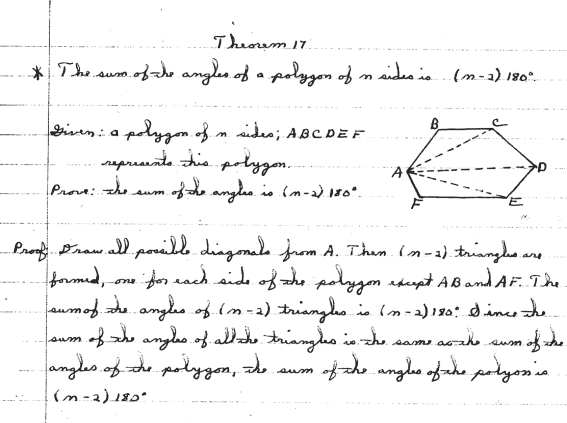 Theorem 17
* The sum of the angles of a polygon of n sides is (n-2) 180°.
Given: a polygon of n sides; ABCDEF
represents this polygon.
Prove: the sum of the angles is (n-2) 180°.
B C
A D
F E
Proof: Draw all possible diagonals from A. Then (n-2) triangles are
formed, one for each side of the polygon except AB and AF. The
sum of the angles of (n-2) triangles is (n-2) 180°. Since the
sum of the angles of all the triangles is the same as the sum of the
angles of the polygon, the sum of the angles of the polyon is
(n-2) 180°